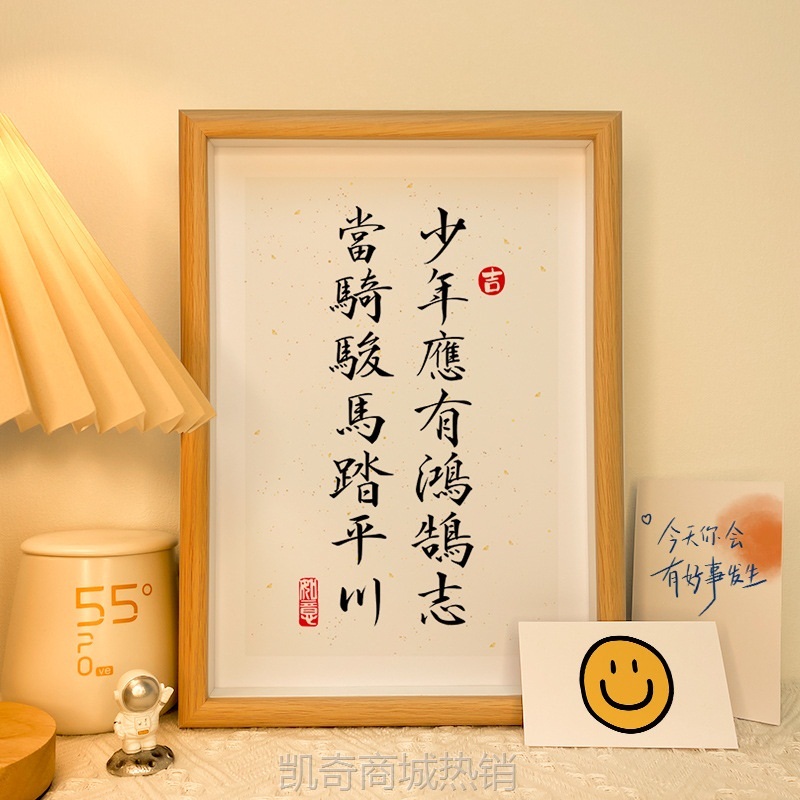 少年應有鴻鵠志
當騎駿馬踏平川
吉
如意
55°
PO
ve
今天你会
有好事发生
凯奇商城热销